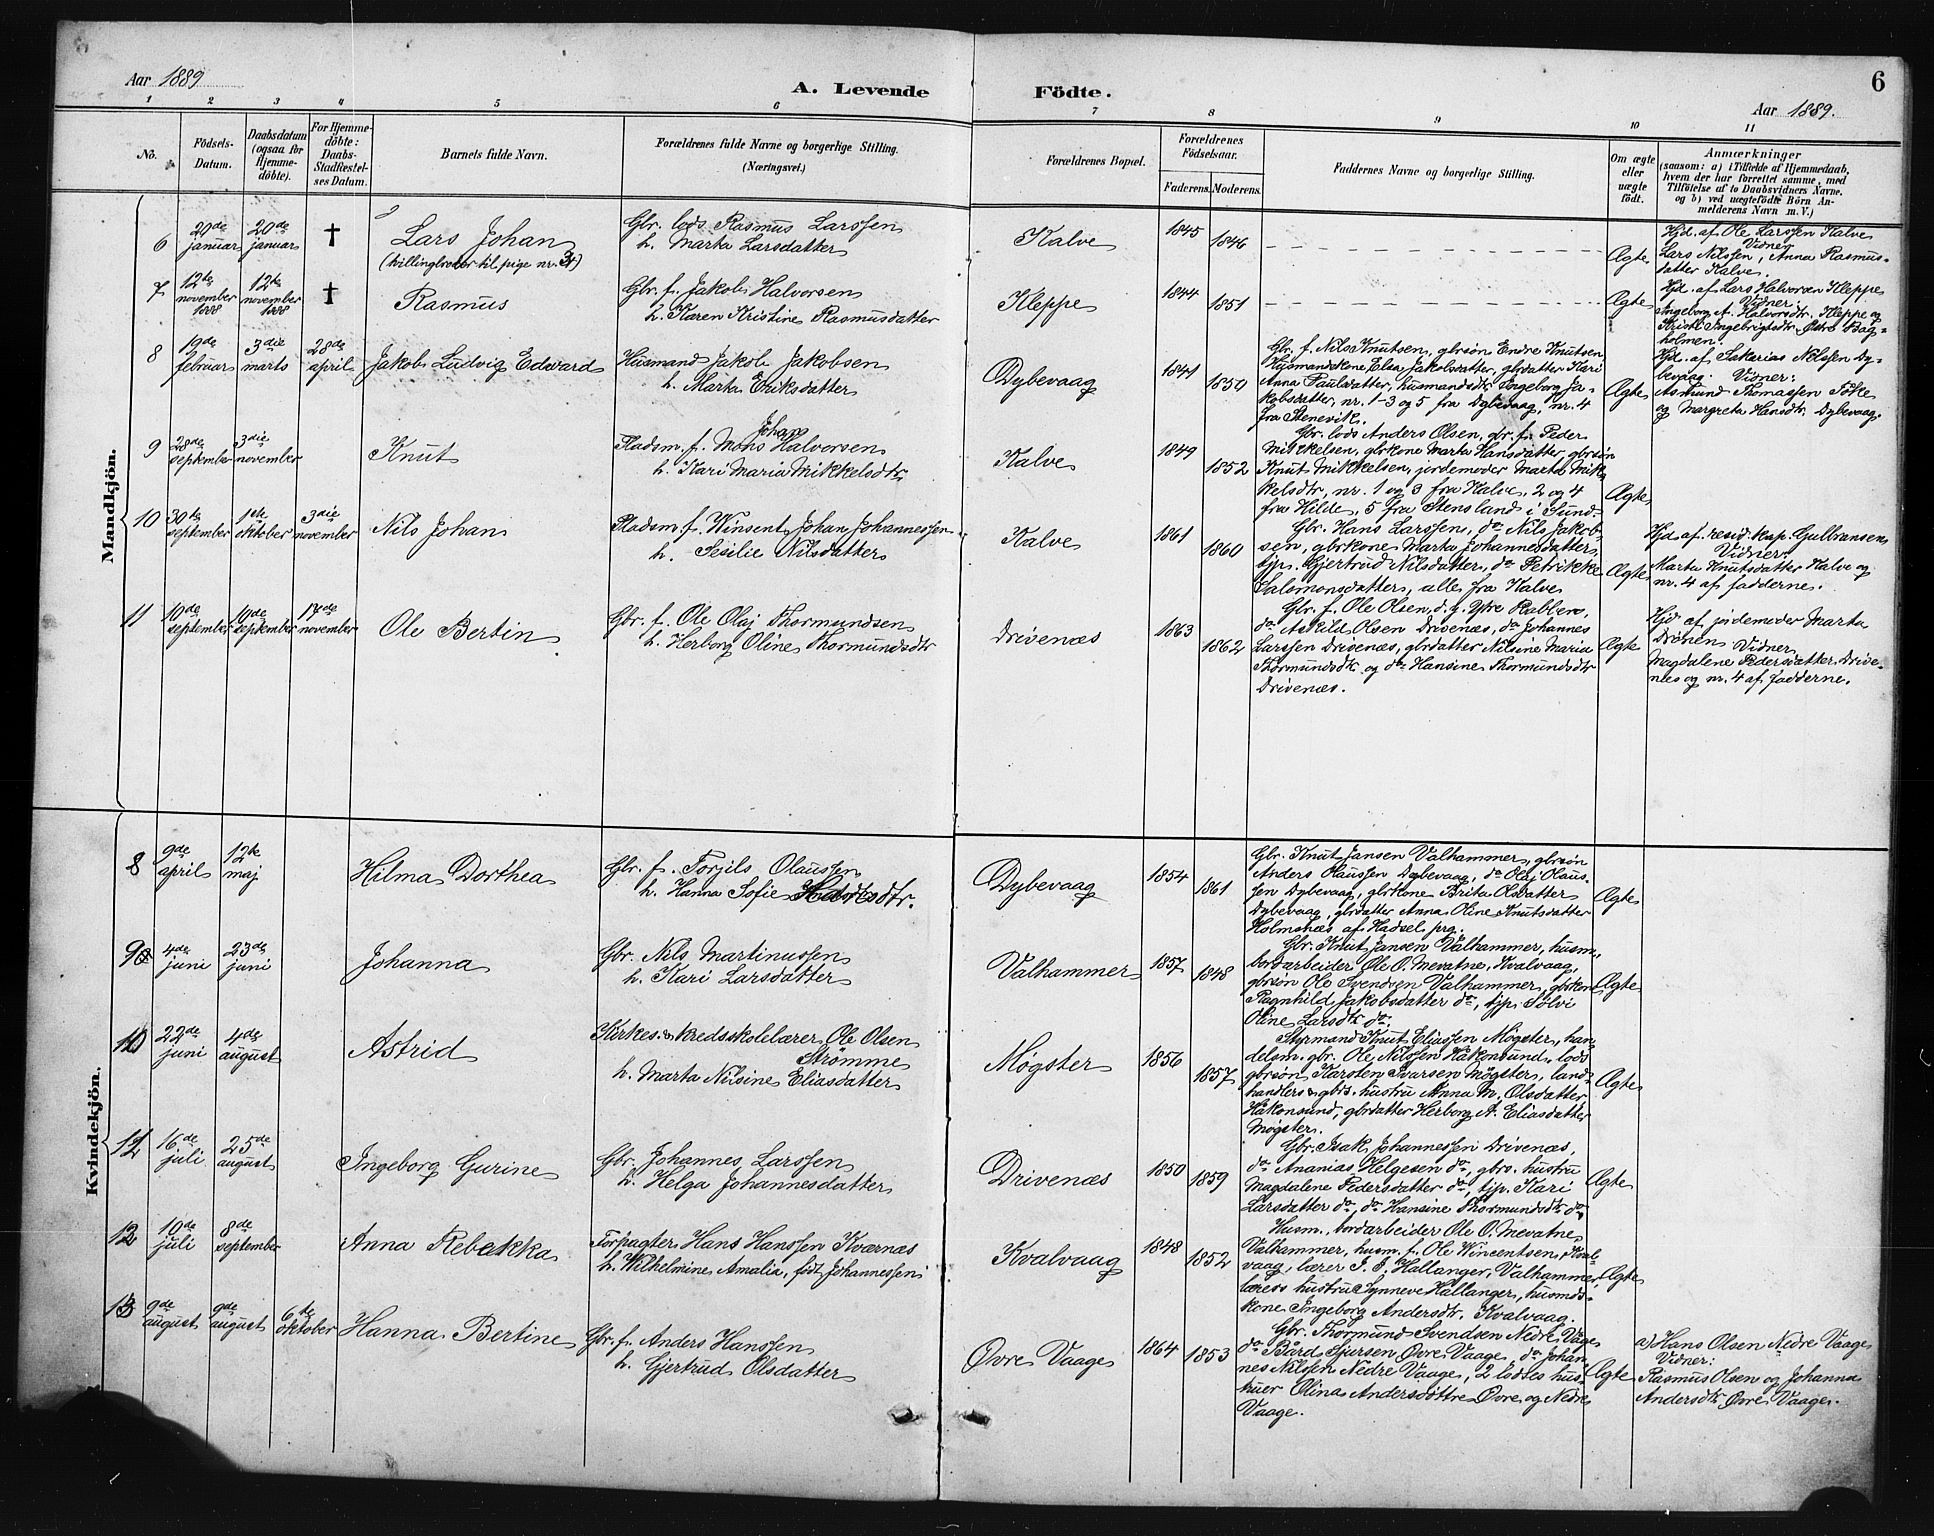 Aar 1889
A. Levende Födte.
6
Aar 1889.
1 2 3 4 5 6 7 8 9 10 11
No.
Födsels-Datum.
Daabsdatum (ogsaa for Hjemme-döbte).
For Hjemme-döbte: Daabs-Stadfæstel-ses Datum.
Barnets fulde Navn.
Forældrenes fulde Navne og borgerlige Stilling. (Næringsvei.)
Forældrenes Bopæl.
Forældrenes Födselsaar.
Faderens. Moderens.
Faddernes Navne og borgerlige Stilling.
Om ægte eller uægte födt.
Anmærkninger
(saasom: a) i Tilfælde af Hjemmedaab,
hvem der har forrettet samme, med
Tilföielse af to Daabsvidners Navne.
og b) ved uægtefödte Börn An-
melderens Navn m. V.)
Mandkjön.
6
20de januar
20de januar
†
Lars Johan
(tvillingbroder til pige nr. 3)
Gbr. lods Rasmus Larssen
h. Marta Larsdatter
Kalve
1845
1846
Ægte
Hjd. af Ole Larssen Kalve
Vidner
Lars Nilssen, Anna Rasmus-
datter Kalve.
7
12te november 1888
12te november 1888
†
Rasmus
Gbr. f. Jakob Halvorsen
h. Karen Kristine Rasmusdatter
Kleppe
1844
1851
Ægte
Hjd. af Lars Halvorsen Kleppe
Vidner:
Ingeborg A. Halvorsdtr. Kleppe og
Kristi Ingebrigtsdtr. Østre Bag-
holmen.
8
19de februar
3die marts
28de april
Jakob Ludvig Edvard
Husmand Jakob Jakobsen
h. Marta Eriksdatter
Dybevaag
1841
1850
Gbr. f. Nils Knutsen, gbrsøn Endre Knutsen
Husmandskone Elsa Jakobsdatter, gbrdatter Kari
Anna Paulsdatter, husmandsdtr. Ingeborg Ja-
kobsdatter, nr. 1-3 og 5 fra Dybevaag, nr. 4
fra Stenevik.
Ægte
Hjd. af Sakarias Nilssen Dy-
bevaag. Vidner:
Asmund Thomassen Töke
og Margreta Hansdtr. Dybevaag.
9
28de september
3die november
Knut
Johan
Pladsm. f. Mons Halvorsen
h. Kari Maria Mikkelsdtr
Kalve
1849
1852
Gbr. lods Anders Olsen, gbr. f. Peder
Mikkelsen, gbrkone Marta Hansdatter, gbrsøn
Knut Mikkelsen, jordemoder Marta Mik-
kelsdtr, nr. 1 og 3 fra Kalve, 2 og 4
fra Hilde, 5 fra Stensland i Sund.
Ægte
10
30te september
1ste oktober
3die november
Nils Johan
Pladsm. f. Winsent Johan Johannessen
h. Sisilie Nilsdatter
Kalve
1861
1860
Gbr. Hans Larssen, do Nils Jakob-
sen, gbrkone Marta Johannesdatter,
tjp. Gjertrud Nilsdatter, do Petrikke
Salomonsdatter, alle fra Kalve
Ægte
Hjd. af resid. kap. Gulbransen
Vidner:
Marta Knutsdatter Kalve og
nr. 4 af fadderne.
11
19de september
19de september
17de november
Ole Bertin
Gbr. f. Ole Olaj Thormundsen
h. Herborg Oline Thormundsdtr
Drivenæs
1863
1862
Gbr. f. Ole Olsen, d. y. Ytre Rabben,
do Askild Olsen Drivenæs, do Johannes
Larssen Drivenæs, gbrdatter Nilsine Maria
Thormundsdtr. og do Hansine Thormundsdtr
Drivenæs.
Ægte
Hjd af jordemoder Marta
Drønen Vidner
Magdalene Pedersdatter Drive-
næs og nr. 4 af fadderne.
Kvindekjön.
8
9de april
12te maj
Hilma Dorthea
Gbr. f. Torjils Olaussen
h. Hanna Sofie
Dybevaag
1854
1861
Gbr. Knut Jansen Valhammer, gbrsøn
Anders Olaussen Dybevaag, do Olaj Olaus-
sen Dybevaag, gbrkone Brita Olsdatter
Dybevaag, gbrdatter Anna Oline Knutsdatter
Holmenæs af Hadsel prg.
Ægte
9
4de juni
23de juni
Johanna
Gbr. Nils Martinussen
h. Kari Larsdatter
Valhammer
1857
1848
Gbr. Knut Jansen Valhammer, husm.
jordarbeider Ole O. Mevatne, Kvalvaag,
gbrsøn Ole Svendsen Valhammer, gbrkone
Ragnhild Jakobsdatter do, tjp. Sølvi
Oline Larsdtr do.
Ægte
10
22de juni
4de august
Astrid
Kirkes. & kredsskolelærer Ole Olsen
Strømme
h. Marta Nilsine Eliasdatter
Møgster
1856
1857
Styrmand Knut Eliassen Møgster, han-
delsm. gbr. Ole Nilssen Håkonsund, lods
gbrsøn Karsten Ivarsen Møgster, land-
handlers & gbrs. hustru Anna M. Olsdatter
Håkonsund, gbrdatter Herborg A. Eliasdatter
Møgster.
Ægte
11
16de juli
25de august
Ingeborg Gurine
Gbr. Johannes Larssen
h. Helga Johannesdatter
Drivenæs
1850
1859
Gbr. Isak Johannessen Drivenæs,
do Ananias Helgesen do, gbrs. hustru
Magdalene Pedersdatter do, tjp. Kari
Larsdatter do, do Hansine Thormundsdtr do
Ægte
12
10de juli
8de september
Anna Rebekka
Forpagter Hans Hanssen Kværnæs
h. Wilhelmine Amalia, født Johannessen
Kvalvaag
1848
1852
Husm. jordarbeider Ole O. Mevatne
Valhammer, husm. f. Ole Wincentsen, Kval-
vaag, lærer J. J. Hallanger, Valhammer,
lærers hustru Synneve Hallanger, husmds-
kone Ingeborg Andersdtr. Kvalvaag.
Ægte
13
9de august
9de august
6te oktober
Hanna Bertine
Gbr. f. Anders Hanssen
h. Gjertrud Olsdatter
Øvre Vaage
1864
1853
Gbr. Thormund Svendsen Nedre Vaage
do Bård Sjursen Øvre Vaage, do Johan-
nes Nilssen Nedre Vaage, 2 lodtes hus-
truer Olina Andersdøttre Øvre og Nedre
Vaage.
Ægte
a) Hans Olsen Nedre Vaage
Vidner:
Rasmus Olsen og Johanna
Andersdtr. Øvre Vaage.